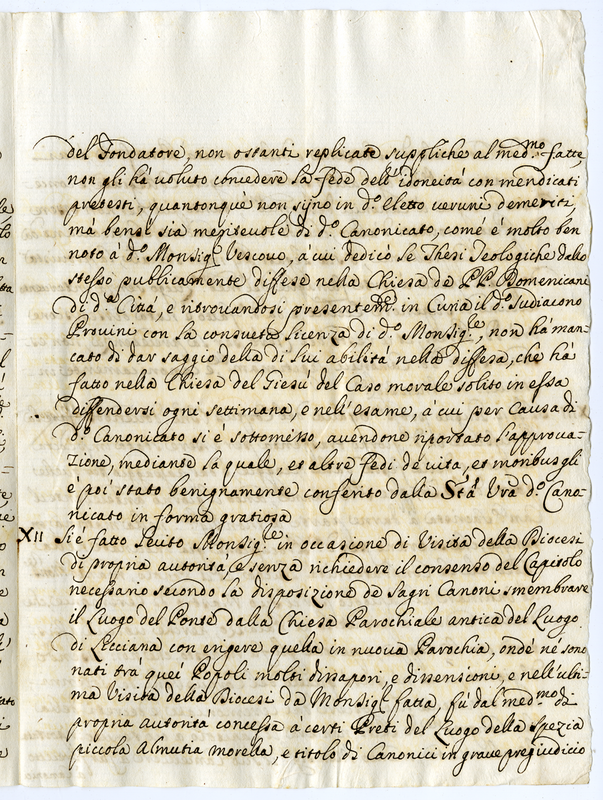 del Fondatore, non ostanti replicate suppliche al med.mo fatte,
non gli há voluto concedere la fede dell'idoneitá con mendicati
pretesti, quantonque non sijno in d.o eletto veruni demeriti
má bensi sia meritevole di d.o Canonicato, come é molto ben
noto á d.o Monsig.r Vescovo, á cui dedicó le Thesi Teologiche dallo
stesso publicamente diffese nella Chiesa de PP. Domenicani
di d.a Cittá, e ritrovandosi presentem.te in Curia il d.o Sudiacono
Provini con la consueta licenza di d.o Monsig.re, non há man-
cato di dar saggio della di lui abilitá nella diffesa, che há
fatto nella Chiesa del Giesú del Caso morale solito in essa
diffendersi ogni settimana, e nell'esame, a cui per causa di
d.o Canonicato si é sottomesso, avendone riportato l'approva-
zione, mediante la quale, et altre fedi de vita, et moribus gli
é poi stato benignamente conferito dalla S.tá V.rá d.o Cano-
nicato in forma gratiosa
XII Si é fatto lecito Monsig.re in occasione di Visita della Diocesi
di propria autoritá, e senza richiedere il consenso del Capitolo
necessario secondo la disposizione de Sagri Canoni smembrare
il Luogo del Ponte dalla Chiesa Parochiale antica del Luogo
di Lecciana con erigere quella in nuova Parochia, onde né sono
nati trá quei Popoli molti dissapori, e dissensioni, e nell'ulti-
ma Visita della Diocesi da Monsig.r fatta, fú dal med.mo di
propria autoritá concessa á certi Preti del Luogo della Spezia
piccola Almutia morella, e titolo di Canonici in grave pregiudicio